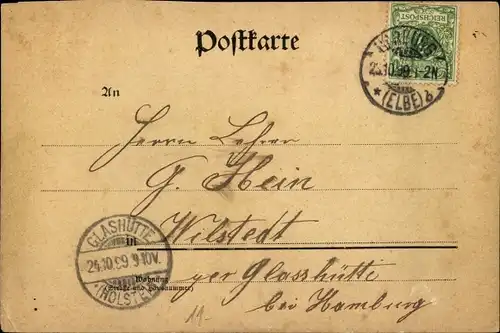 Postkarte
REICHSPOST
HARBURG
23.10.99 1-2N
* (ELBE) *
An
Herrn Lehrer
G. Hein
in Wilstedt
GLASHÜTTE
24.10.99 9-10V.
(HOLSTEIN)
Wohnung
(Straße und Hausnummer)
per Glashütte
bei Hamburg